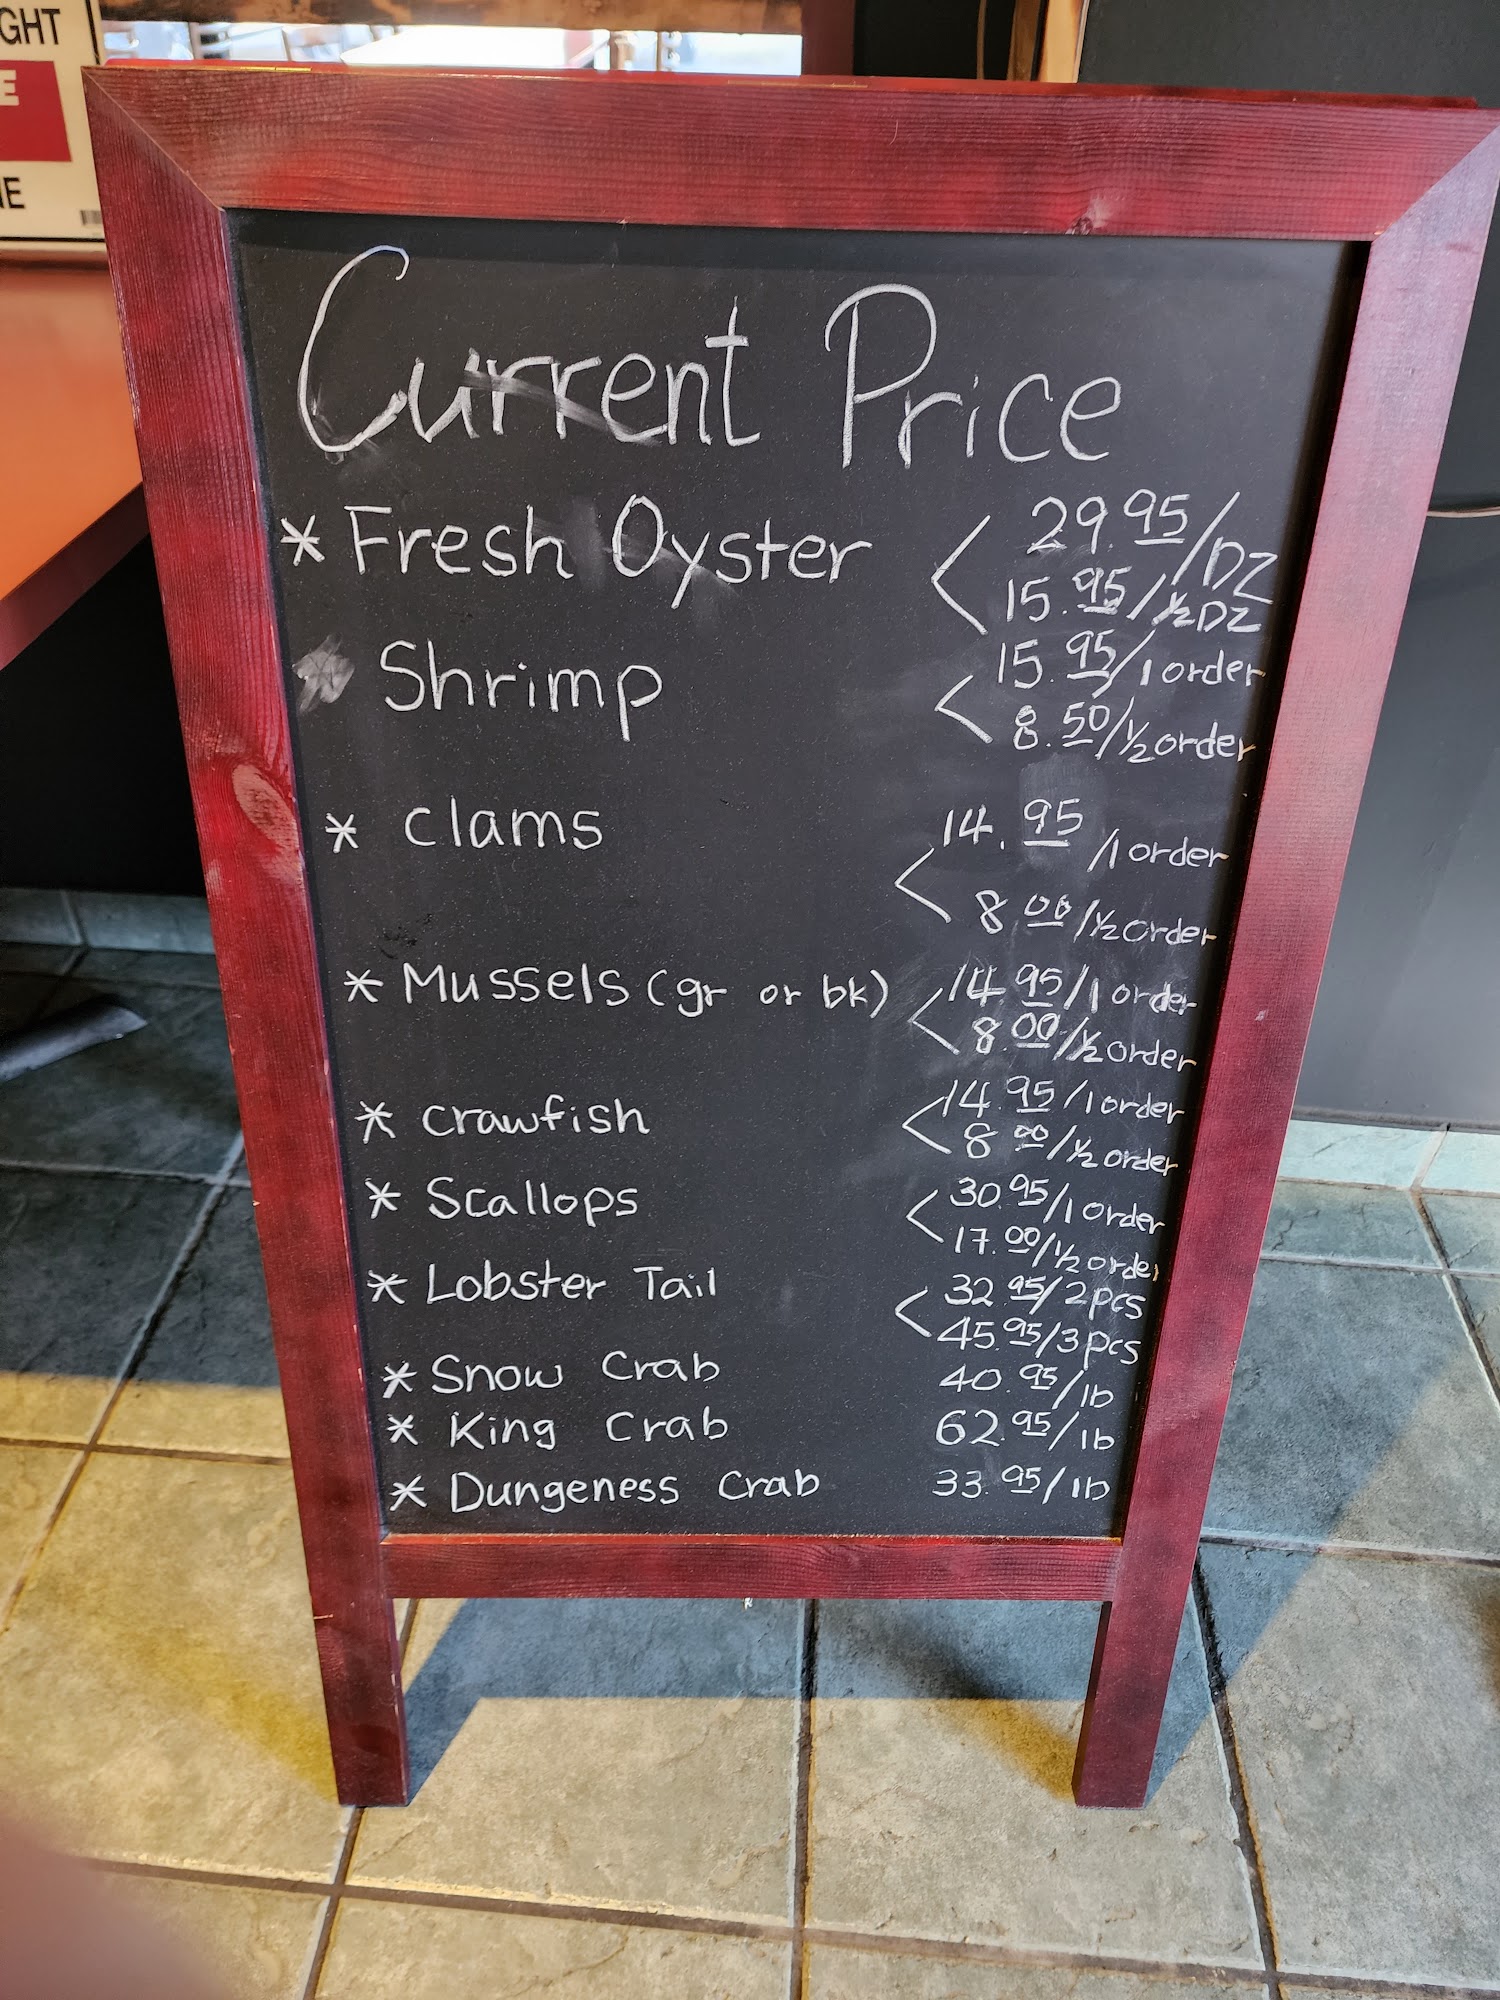 GHT
E
NE
Current Price
* Fresh Oyster < 29.95/DZ
15.95/½DZ
Shrimp < 15.95/1 order
8.50/½ order
* clams < 14.95/1 order
8 00/½ order
* Mussels (gr or bk) < 14.95/1 order
8.00/½ order
* crawfish < 14.95/1 order
8 00/½ order
* Scallops < 30.95/1 order
17.00/½ order
* Lobster Tail < 32.95/2 pcs
45.95/3 pcs
* Snow Crab 40.95/lb
* King Crab 62.95/lb
* Dungeness Crab 33.95/lb